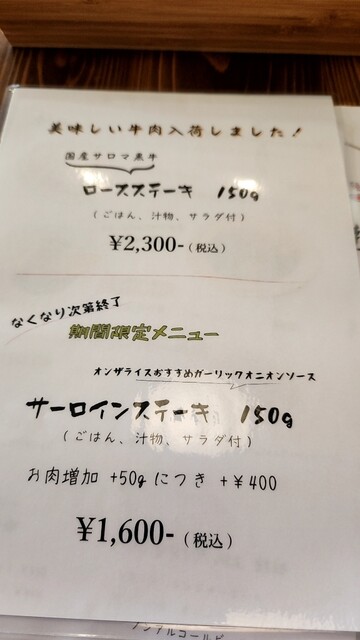 美味しい牛肉入荷しました！
国産サロマ黒牛
ロースステーキ 150g
(ごはん、汁物、サラダ付)
¥2,300-(税込)
なくなり次第終了
期間限定メニュー
オンザライスおすすめガーリックオニオンソース
サーロインステーキ 150g
(ごはん、汁物、サラダ付)
お肉増加 +50gにつき +¥400
¥1,600-(税込)
ノンアルコールビ